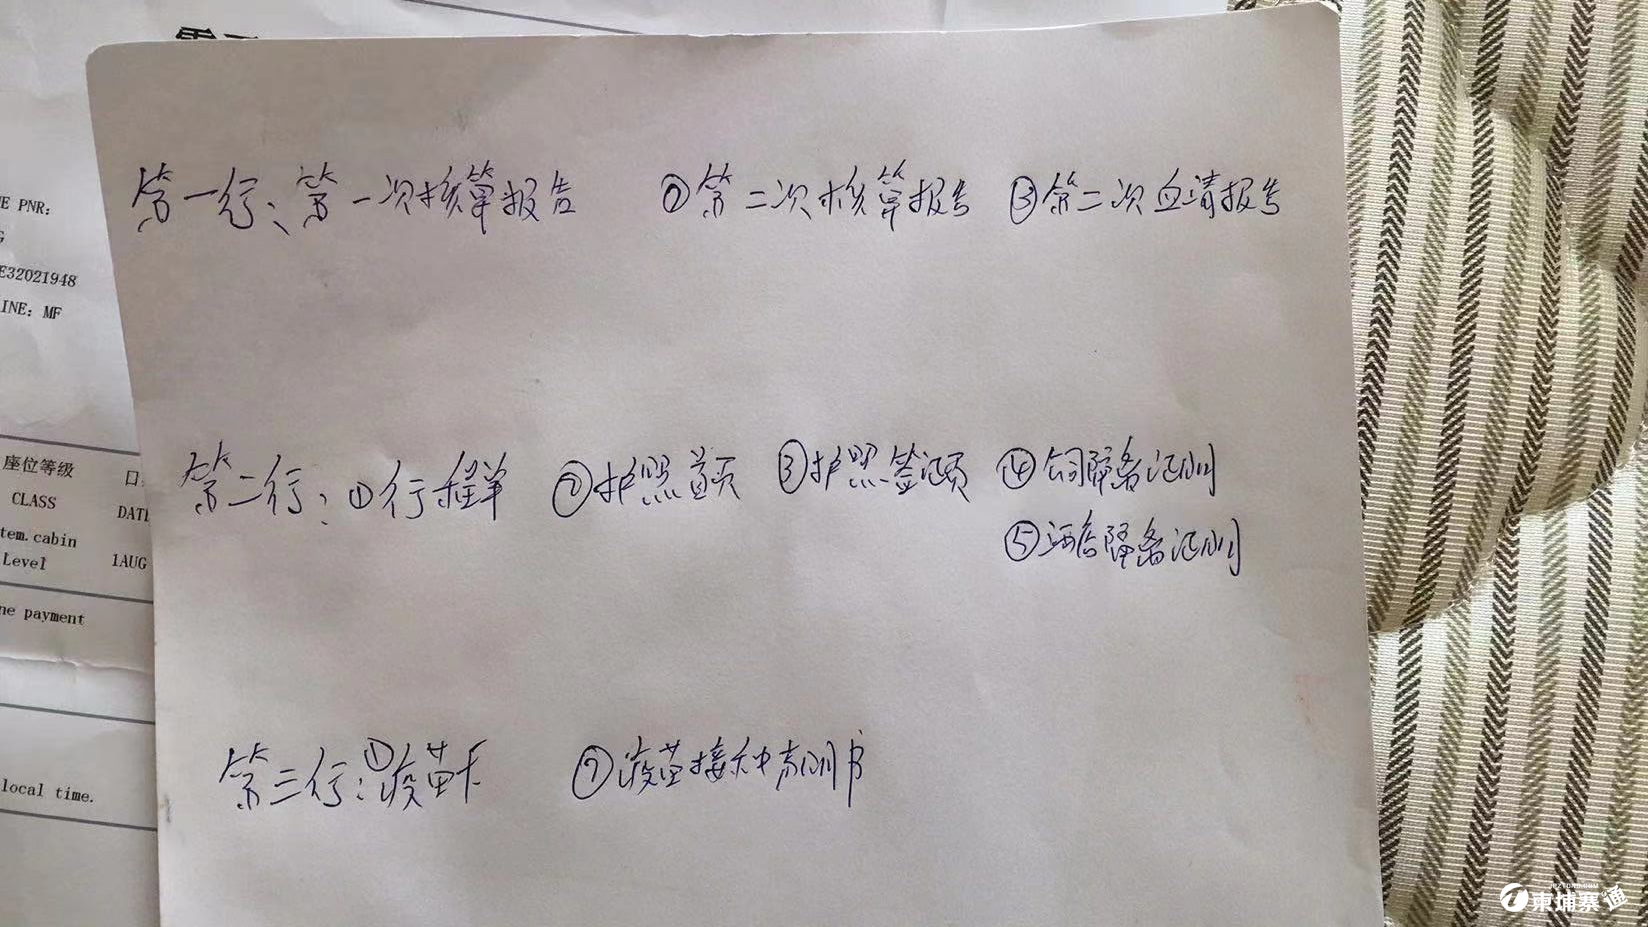 E PNR:
E32021948
INE: MF
座位等级
CLASS
DATE
tem.cabin
Level
1AUG
ne payment
local time.
第一行: 第一次核算报告 ②第二次核算报告 ③第二次血清报告
第二行: ①行程单 ②护照首页 ③护照签证页 ④公司隔离证明
⑤酒店隔离证明
第三行: ①疫苗卡 ②疫苗接种声明书
柬埔寨通